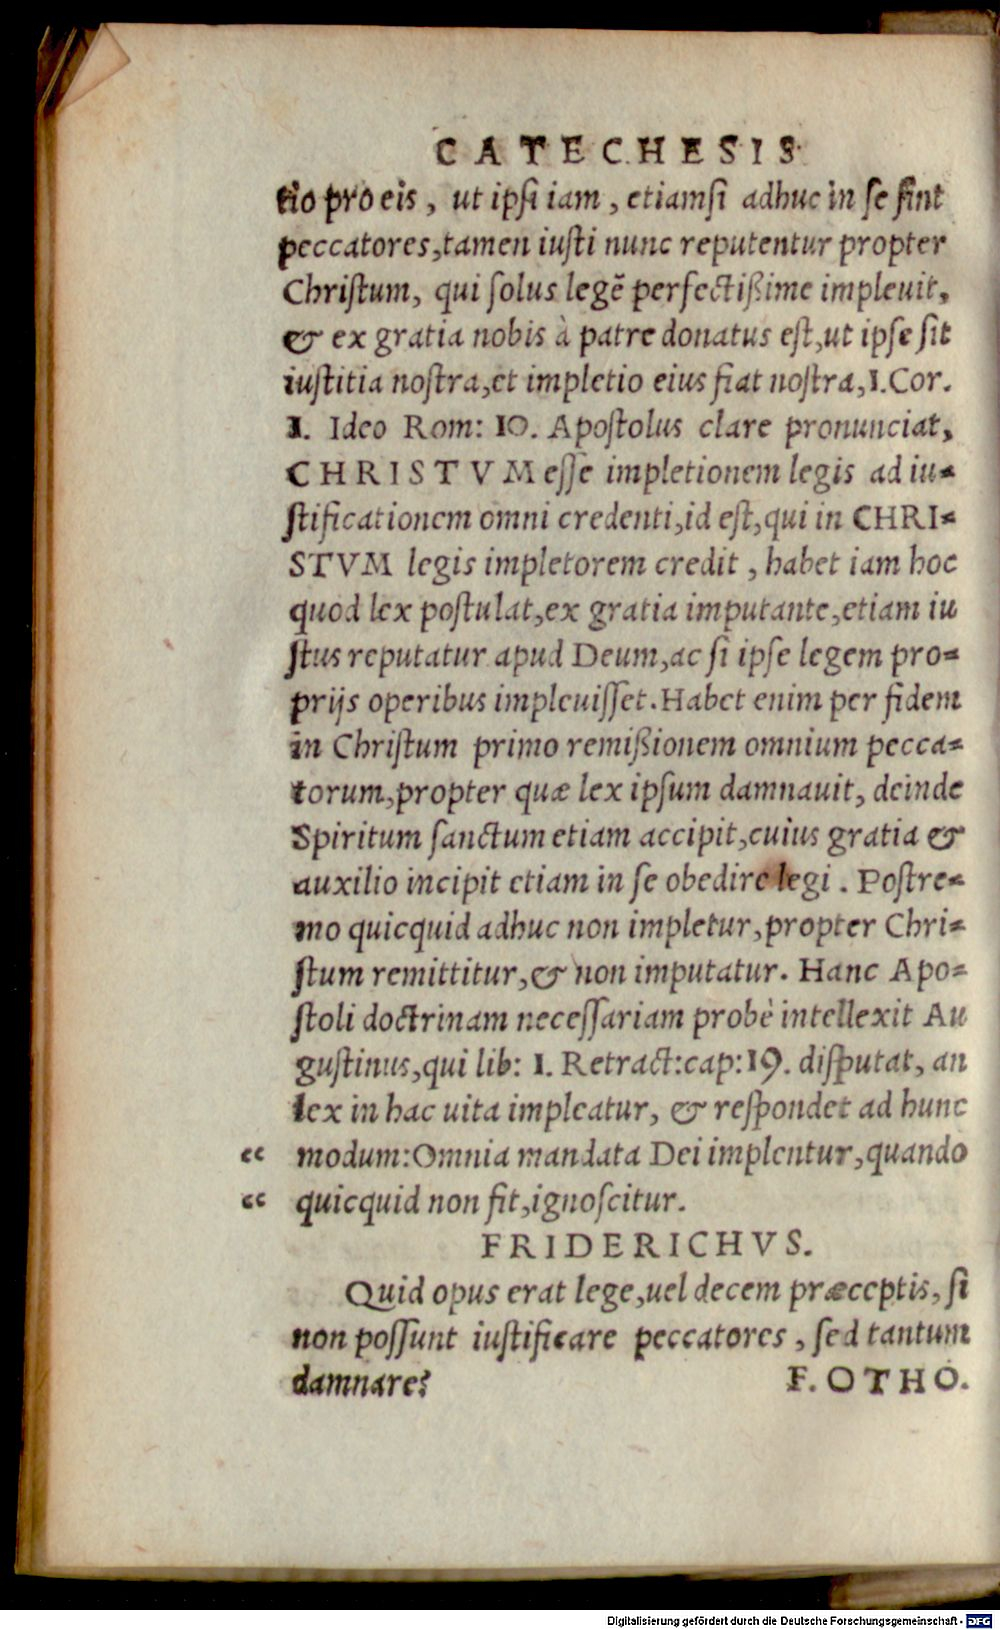 CATECHESIS
tio pro eis, ut ipſi iam, etiamſi adhuc in ſe ſint
peccatores,tamen iuſti nunc reputentur propter
Chriſtum, qui ſolus legẽ perfectißime impleuit,
& ex gratia nobis à patre donatus eſt,ut ipſe ſit
iuſtitia noſtra,et impletio eius fiat noſtra,1.Cor.
1. Ideo Rom: 10. Apoſtolus clare pronunciat,
CHRISTVM eſſe impletionem legis ad iu-
ſtificationem omni credenti,id eſt,qui in CHRI-
STVM legis impletorem credit, habet iam hoc
quod lex poſtulat,ex gratia imputante,etiam iu
ſtus reputatur apud Deum,ac ſi ipſe legem pro-
prijs operibus impleuiſſet.Habet enim per fidem
in Chriſtum primo remißionem omnium pecca-
torum,propter quæ lex ipſum damnauit, deinde
Spiritum ſanctum etiam accipit,cuius gratia &
auxilio incipit etiam in ſe obedire legi. Poſtre-
mo quicquid adhuc non impletur,propter Chri-
ſtum remittitur,& non imputatur. Hanc Apo-
ſtoli doctrinam neceſſariam probè intellexit Au
guſtinus,qui lib: 1. Retract:cap:19. diſputat, an
lex in hac uita impleatur, & reſpondet ad hunc
“ modum:Omnia mandata Dei implentur,quando
“ quicquid non fit,ignoſcitur.
FRIDERICHVS.
Quid opus erat lege,uel decem præceptis, ſi
non poſſunt iuſtificare peccatores, ſed tantum
damnare? F. OTHO.
Digitalisierung gefördert durch die Deutsche Forschungsgemeinschaft - DFG